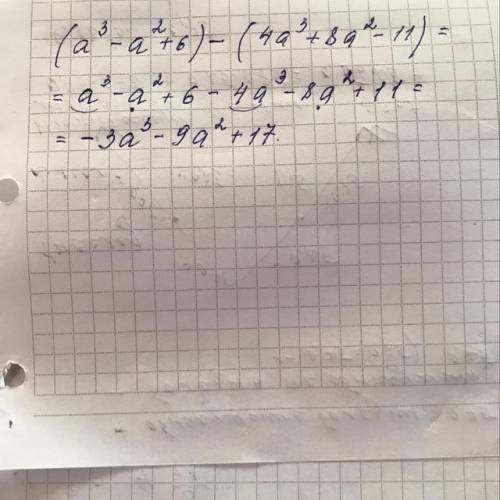 (a³-a²+6)-(4a³+8a²-11)=
=a³-a²+6-4a³-8a²+11=
=-3a³-9a²+17.